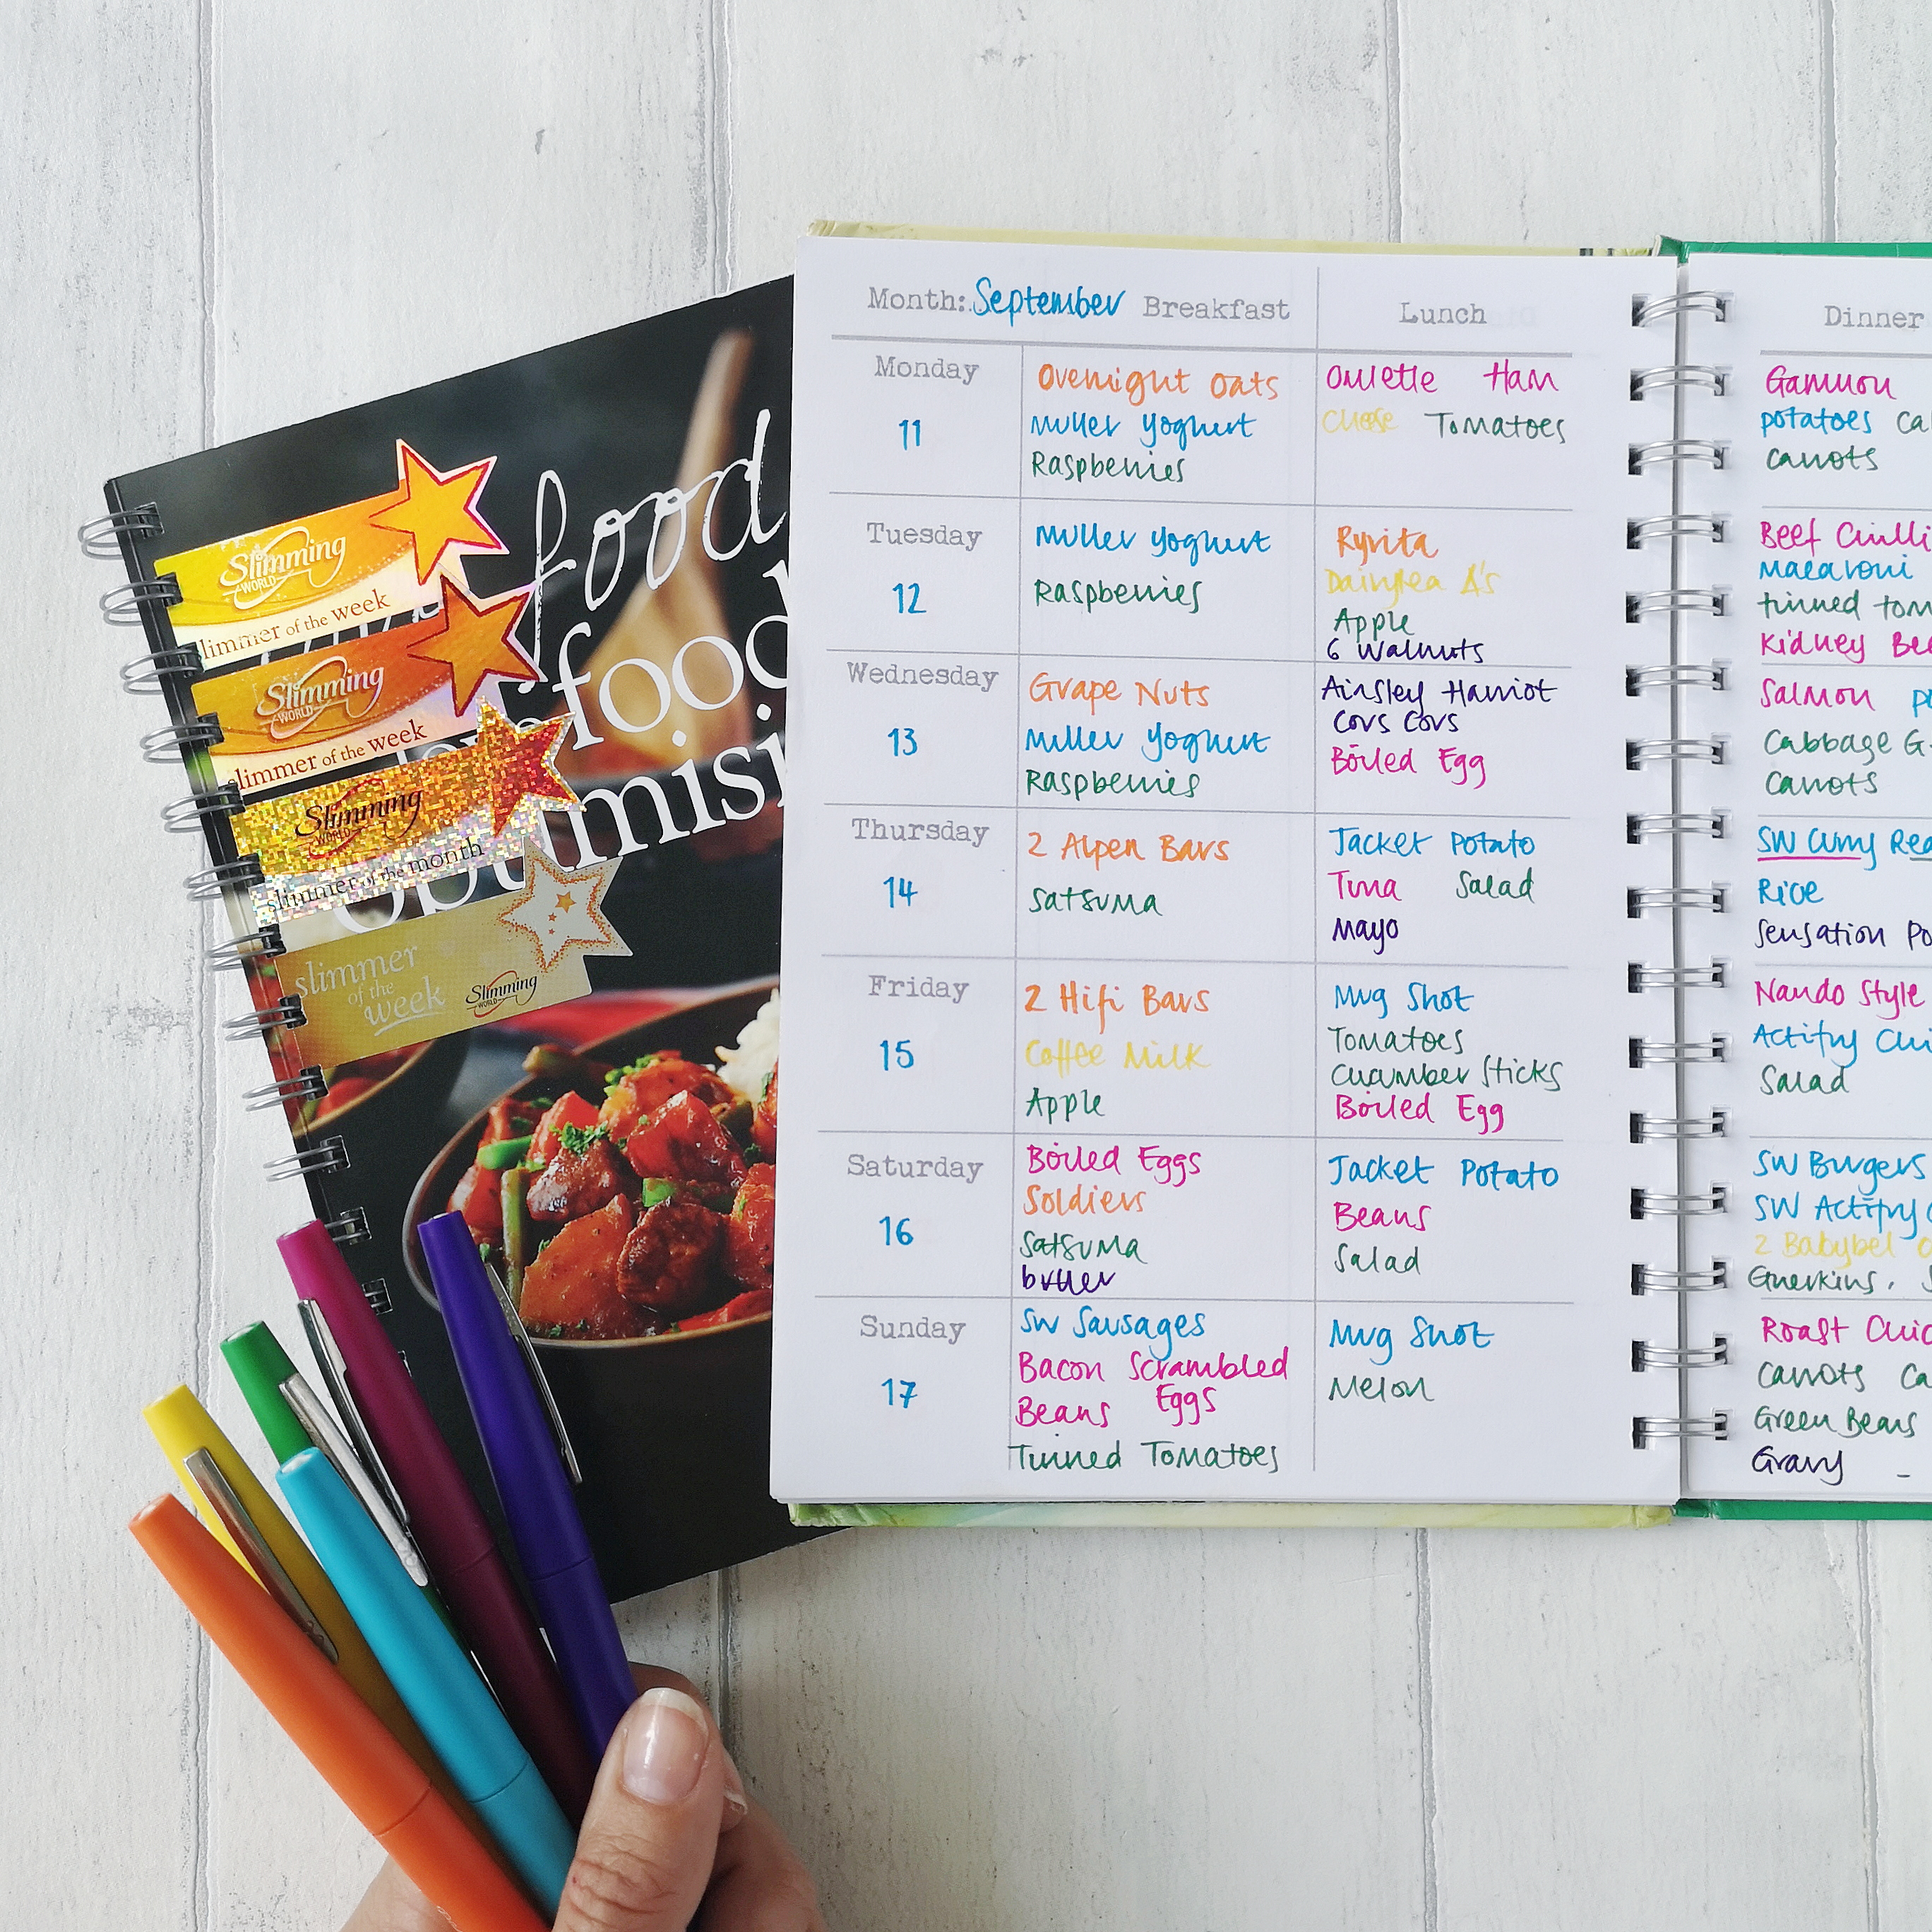 food
food
optimisi
Slimming
WORLD
slimmer of the week
Slimming
WORLD
slimmer of the week
Slimming
WORLD
slimmer of the month
slimmer
of the
week
Slimming
WORLD
Month: September Breakfast Lunch
Monday
11
Overnight Oats
Muller Yoghurt
Raspberries
Omlette Ham
Cheese Tomatoes
Tuesday
12
Muller Yoghurt
Raspberries
Ryvita
Dairylea Δ's
Apple
6 Walnuts
Wednesday
13
Grape Nuts
Muller Yoghurt
Raspberries
Ainsley Harriot
Cors Cors
Boiled Egg
Thursday
14
2 Alpen Bars
Satsuma
Jacket Potato
Tuna Salad
Mayo
Friday
15
2 Hifi Bars
Coffee Milk
Apple
Mug Shot
Tomatoes
Cucumber Sticks
Boiled Egg
Saturday
16
Boiled Eggs
Soldiers
Satsuma
butter
Jacket Potato
Beans
Salad
Sunday
17
SW Sausages
Bacon Scrambled
Beans Eggs
Tinned Tomatoes
Mug Shot
Melon
Dinner
Gammon
potatoes Ca
Carrots
Beef Chilli
Macaroni
tinned tom
Kidney Be
Salmon
Cabbage G
Carrots
SW Curry Rea
Rice
Sensation Po
Nando Style
Actifry Chi
Salad
SW Burgers
SW Actifry
2 Babybel
Gherkins,
Roast Chic
Carrots Ca
Green Beans
Gravy